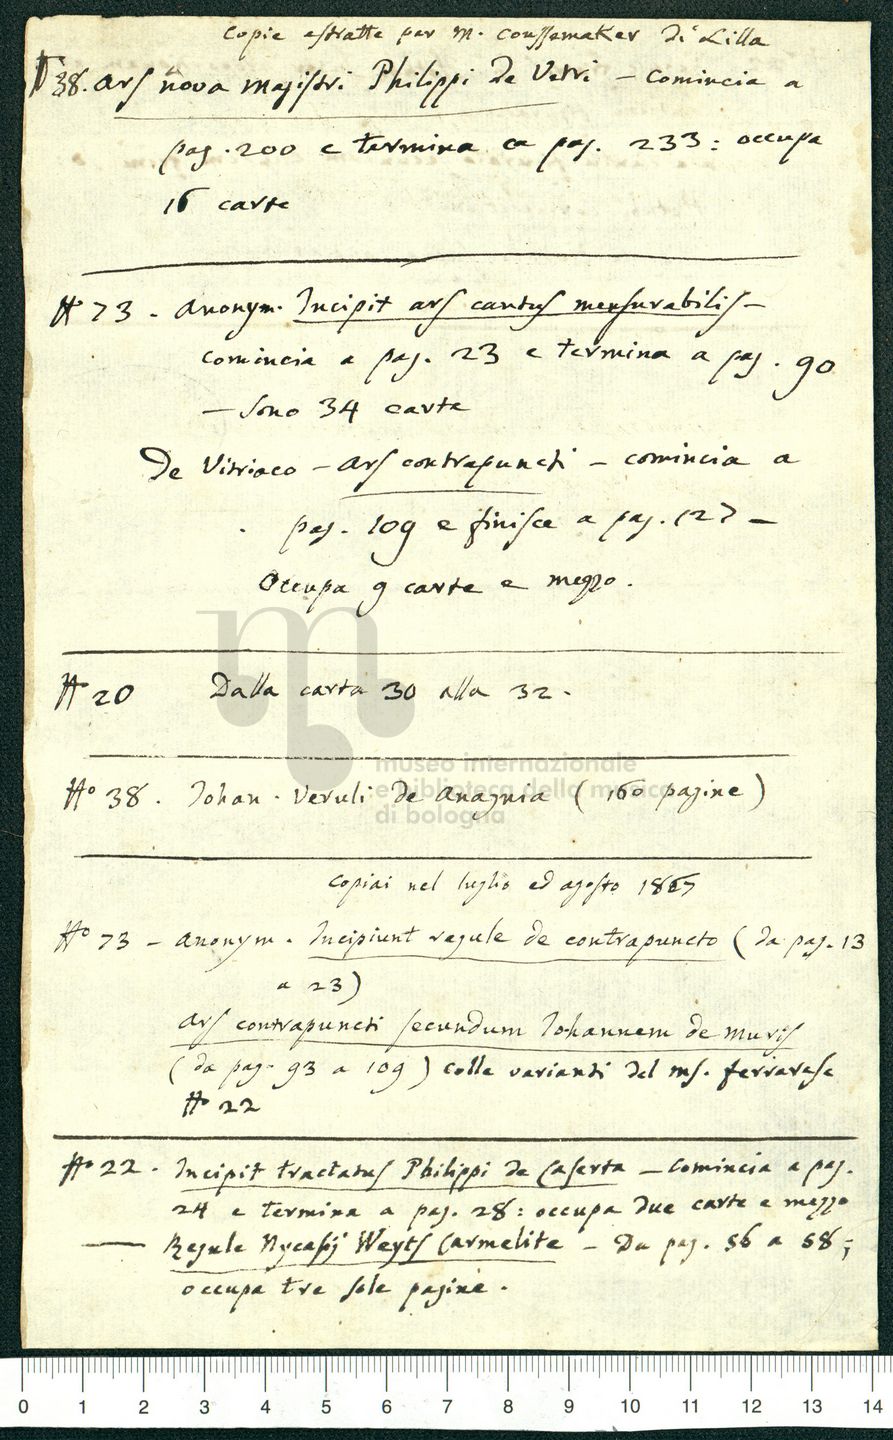 Copie estratte per M. Coussemaker di Lilla
N 38. Ars nova magistri Philippi de Vetri – comincia a
pag. 200 e termina a pag. 233: occupa
16 carte
N° 73 - Anonym. Incipit ars cantus mensurabilis –
comincia a pag. 23 e termina a pag. 90
– Sono 34 carte
De Vitriaco – Ars contrapuncti – comincia a
pag. 109 e finisce a pag. 127 –
Occupa 9 carte e mezzo.
N° 20 Dalla carta 30 alla 32.
museo internazionale
e biblioteca della musica
di bologna
N° 38. Johan. Veruli de Anagnia (160 pagine)
Copiai nel luglio ed agosto 1867
N° 73 – Anonym. Incipiunt regule de contrapuncto (da pag. 13
a 23)
Ars contrapuncti secundum Johannem de Muris
(da pag. 93 a 109) colle varianti del ms. ferrarese
N° 22
N° 22. Incipit tractatus Philippi de Caserta – Comincia a pag.
24 e termina a pag. 28: occupa due carte e mezzo
— Regule Nycasij Weyts Carmelite – Da pag. 56 a 58;
occupa tre sole pagine.
0 1 2 3 4 5 6 7 8 9 10 11 12 13 14